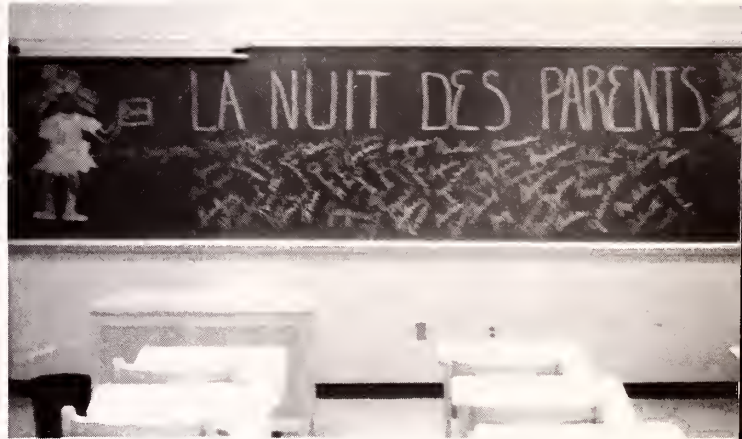 LA NUIT DES PARENTS